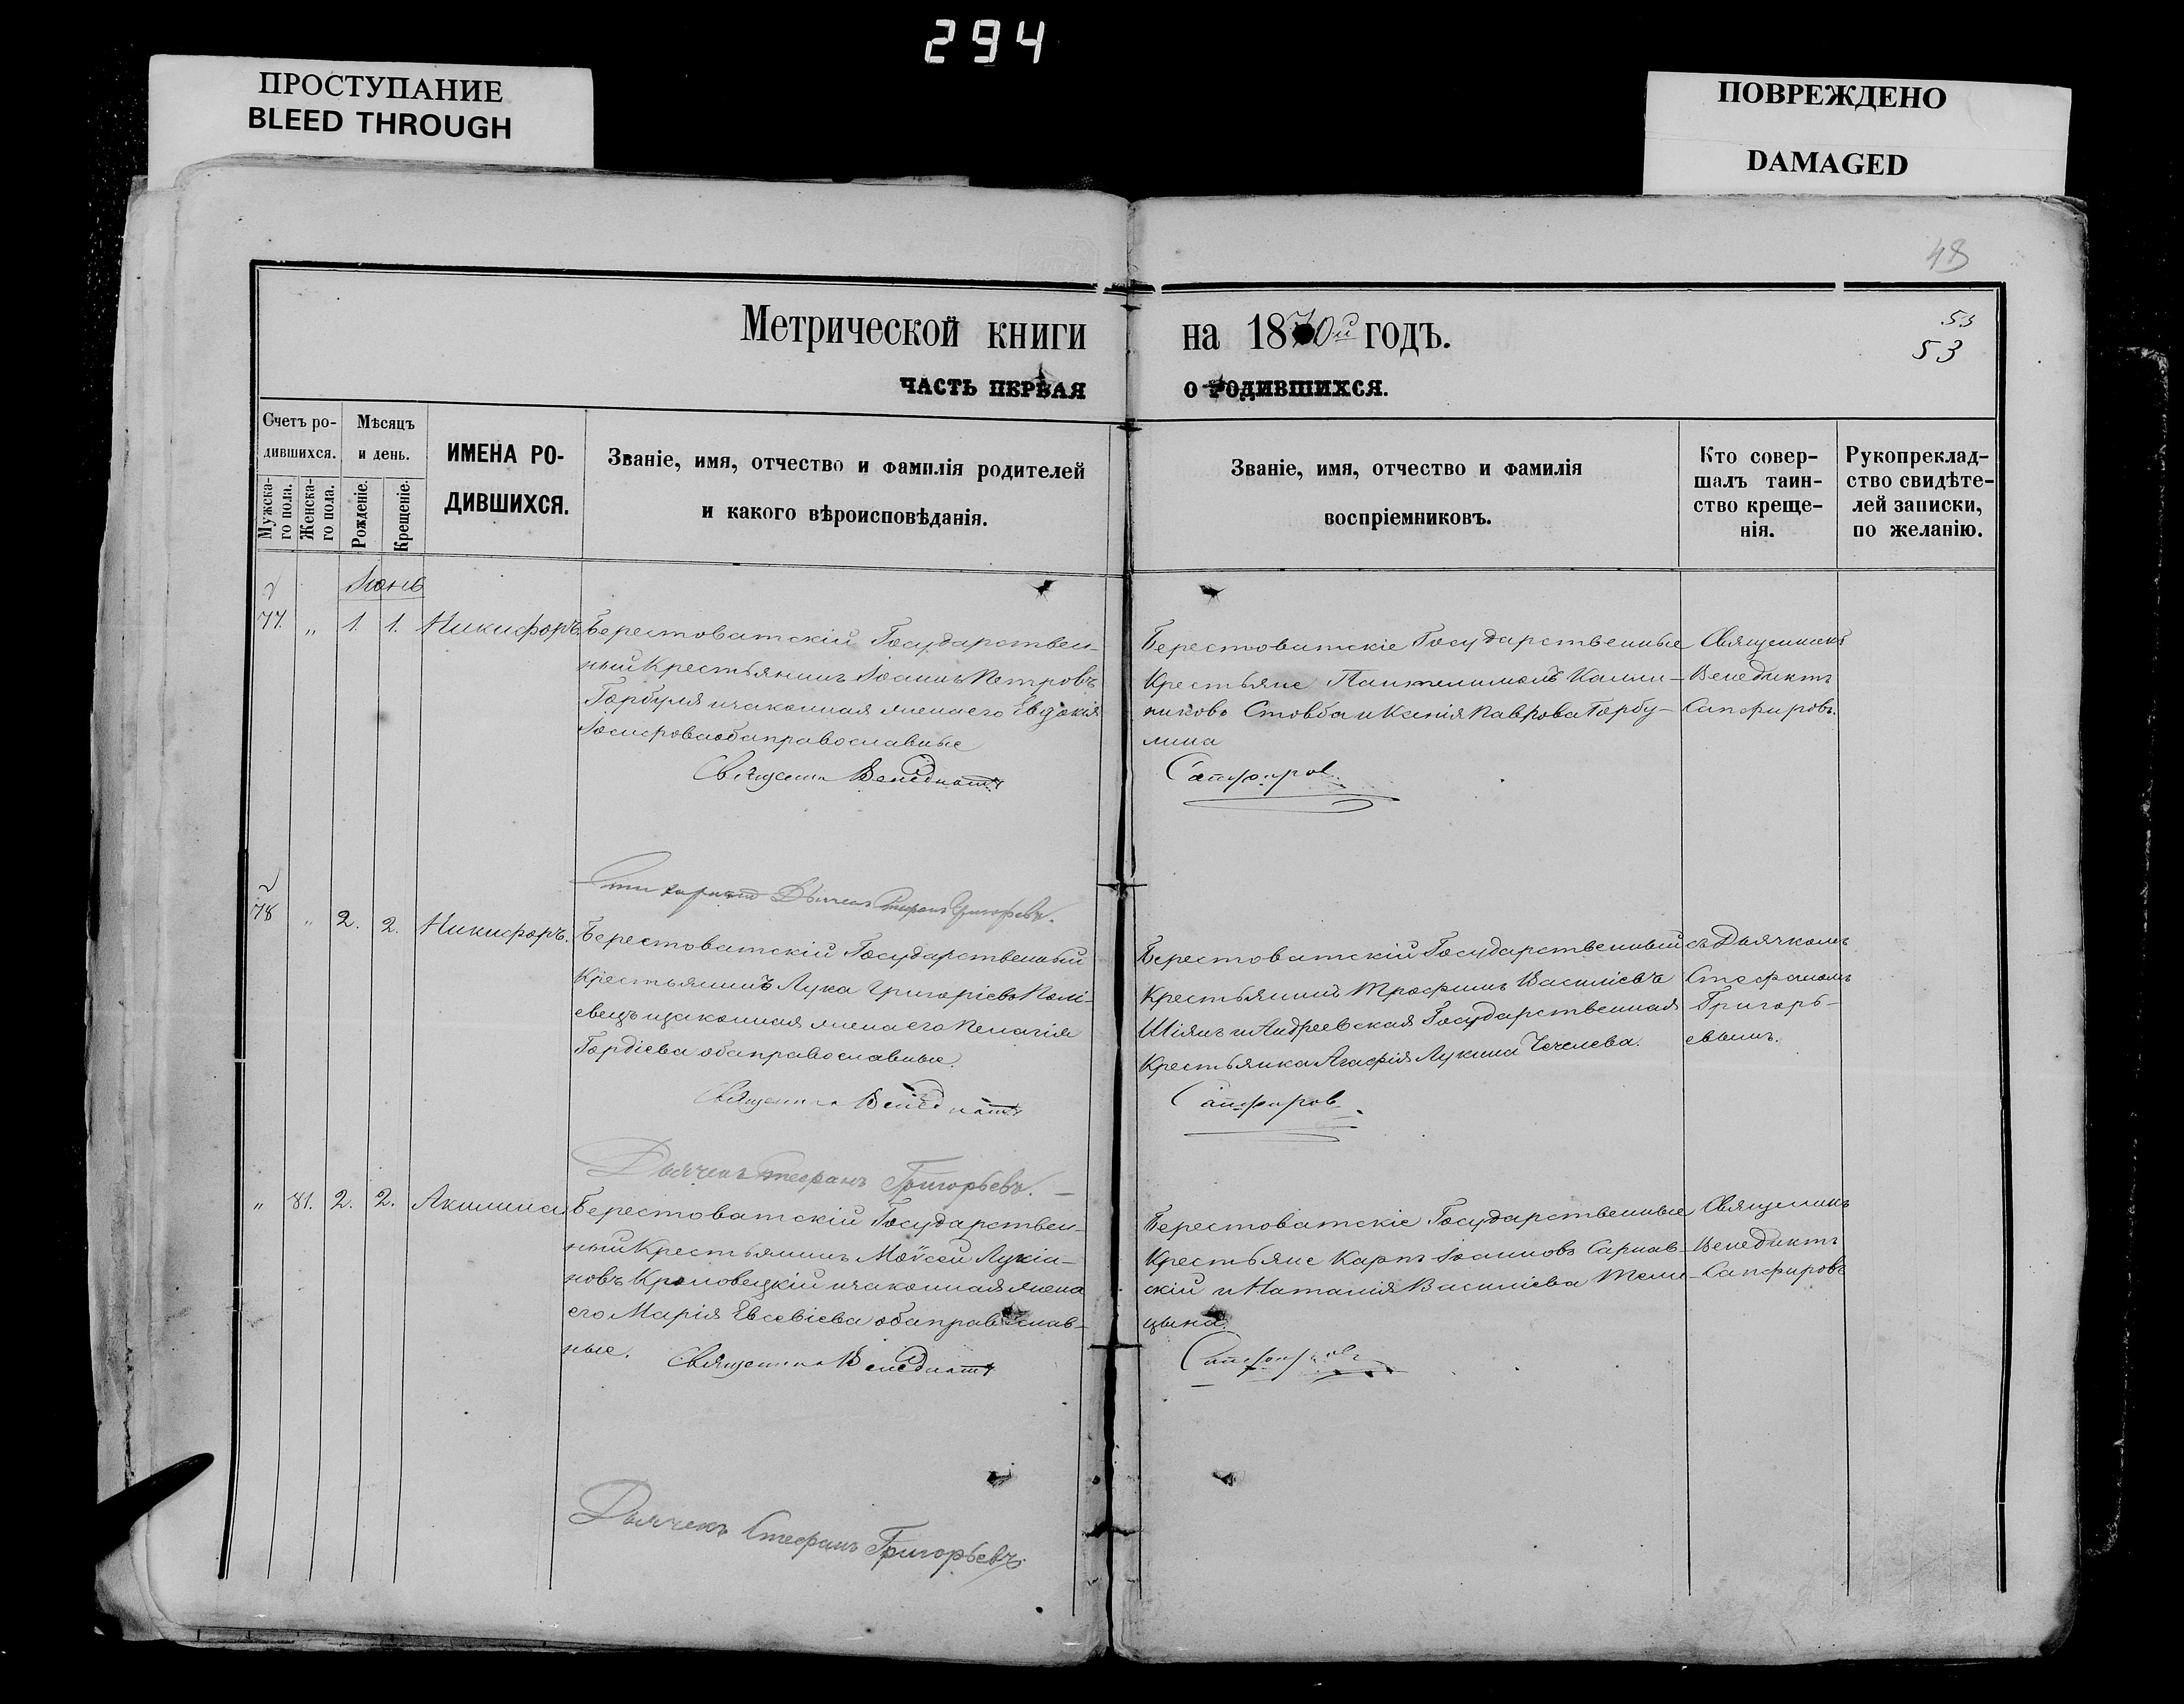 294
ПРОСТУПАНИЕ
BLEED THROUGH
ПОВРЕЖДЕНО
DAMAGED
48
53
53
Метрической книги на 1870й годъ.
ЧАСТЬ ПЕРВАЯ О РОДИВШИХСЯ.
Счетъ родившихся.
Мужскаго пола.
Женскаго пола.
Мѣсяцъ и день.
Рожденіе.
Крещеніе.
ИМЕНА РО-
ДИВШИХСЯ.
Званіе, имя, отчество и фамилія родителей
и какого вѣроисповѣданія.
Званіе, имя, отчество и фамилія
воспріемниковъ.
Кто совер-
шалъ таин-
ство креще-
нія.
Рукопреклад-
ство свидѣте-
лей записки,
по желанію.
Іюнь
77. „ 1. 1. Никифоръ.
Берестоватскій Государствен-
ный Крестьянинъ Іоаннъ Петровъ
Горбуля и законная жена его Евдокія
Іосифова оба православные
Священникъ Венедиктъ
Берестоватскіе Государственные
Крестьяне Пантелимонъ Калли-
никовъ Стовба и Ксенія Павлова Горбу-
лина
Сапфировъ
Священникъ
Венедиктъ
Сапфировъ.
Дьячекъ Стефанъ Григорьевъ.
78 „ 2. 2. Никифоръ.
Берестоватскій Государственный
Крестьянинъ Лука Григоріевъ Полі-
евецъ и законная жена его Пелагія
Гордіева оба православные.
Священникъ Венедиктъ
Берестоватскій Государственный
Крестьянинъ Трофимъ Василіевъ
Шіянъ и Андреевская Государственная
Крестьянка Агафія Лукина Чечелева.
Сапфировъ
съ Дьячкомъ
Стефаномъ
Григорь-
евымъ.
Дьячекъ Стефанъ Григорьевъ.
„ 81. 2. 2. Акилина.
Берестоватскій Государствен-
ный Крестьянинъ Моѵсей Лукіа-
новъ Кроловецкій и законная жена
его Марія Евсевіева оба православ-
ные.
Священникъ Венедиктъ
Берестоватскіе Государственные
Крестьяне Карпъ Іоанновъ Сарнав-
скій и Наталія Василіева Тели-
цына.
Сапфировъ
Священникъ
Венедиктъ
Сапфировъ
Дьячекъ Стефанъ Григорьевъ.